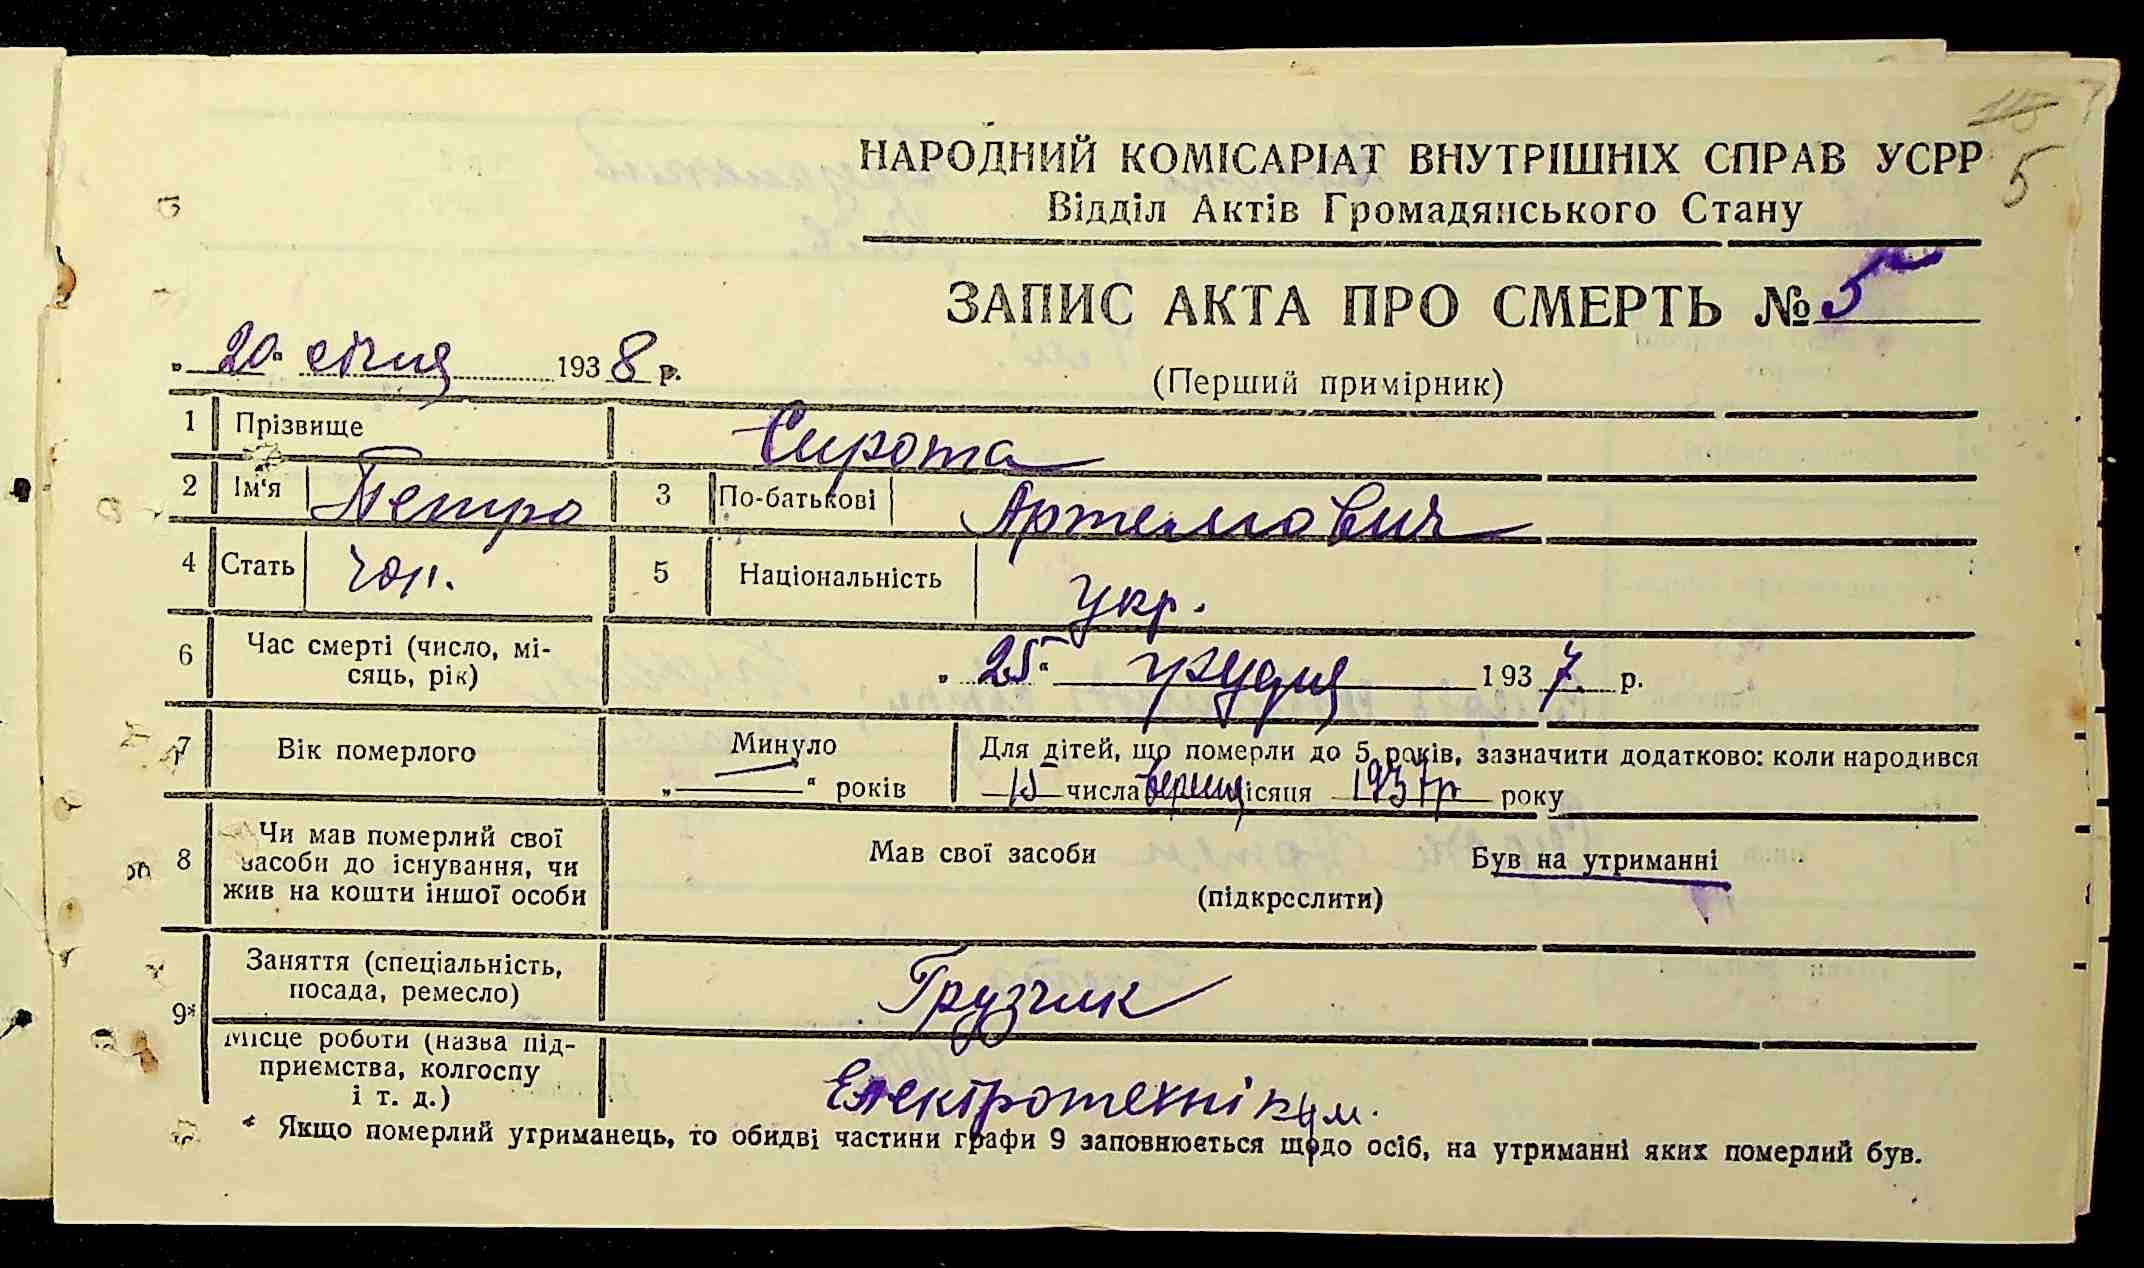 5
НАРОДНИЙ КОМІСАРІАТ ВНУТРІШНІХ СПРАВ УСРР
Відділ Актів Громадянського Стану
ЗАПИС АКТА ПРО СМЕРТЬ № 5
„ 20 “ січня 1938 р.
(Перший примірник)
1 Прізвище Сирота
2 Ім'я Петро 3 По-батькові Артемович
4 Стать чол. 5 Національність укр.
6 Час смерті (число, мі-
сяць, рік) „ 25 “ грудня 1937 р.
7 Вік померлого Минуло Для дітей, що померли до 5 років, зазначити додатково: коли народився
„ — “ років 15 числа вересня місяця 1937 р року
8 Чи мав померлий свої
засоби до існування, чи
жив на кошти іншої особи
Мав свої засоби Був на утриманні
(підкреслити)
9* Заняття (спеціальність,
посада, ремесло) Грузчик
Місце роботи (назва під-
приємства, колгоспу
і т. д.) Електротехнікум.
* Якщо померлий утриманець, то обидві частини графи 9 заповнюється щодо осіб, на утриманні яких померлий був.